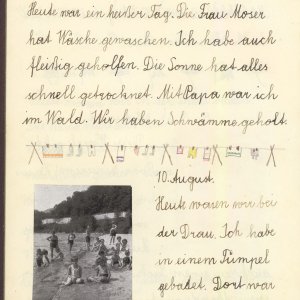 Heute war ein heißer Tag. Die Frau Moser
hat Wäsche gewaschen. Ich habe auch
fleißig geholfen. Die Sonne hat alles
schnell getrocknet. Mit Papa war ich
im Wald. Wir haben Schwämme geholt.
10. August.
Heute waren wir bei
der Drau. Ich habe
in einem Tümpel
gebadet. Dort war